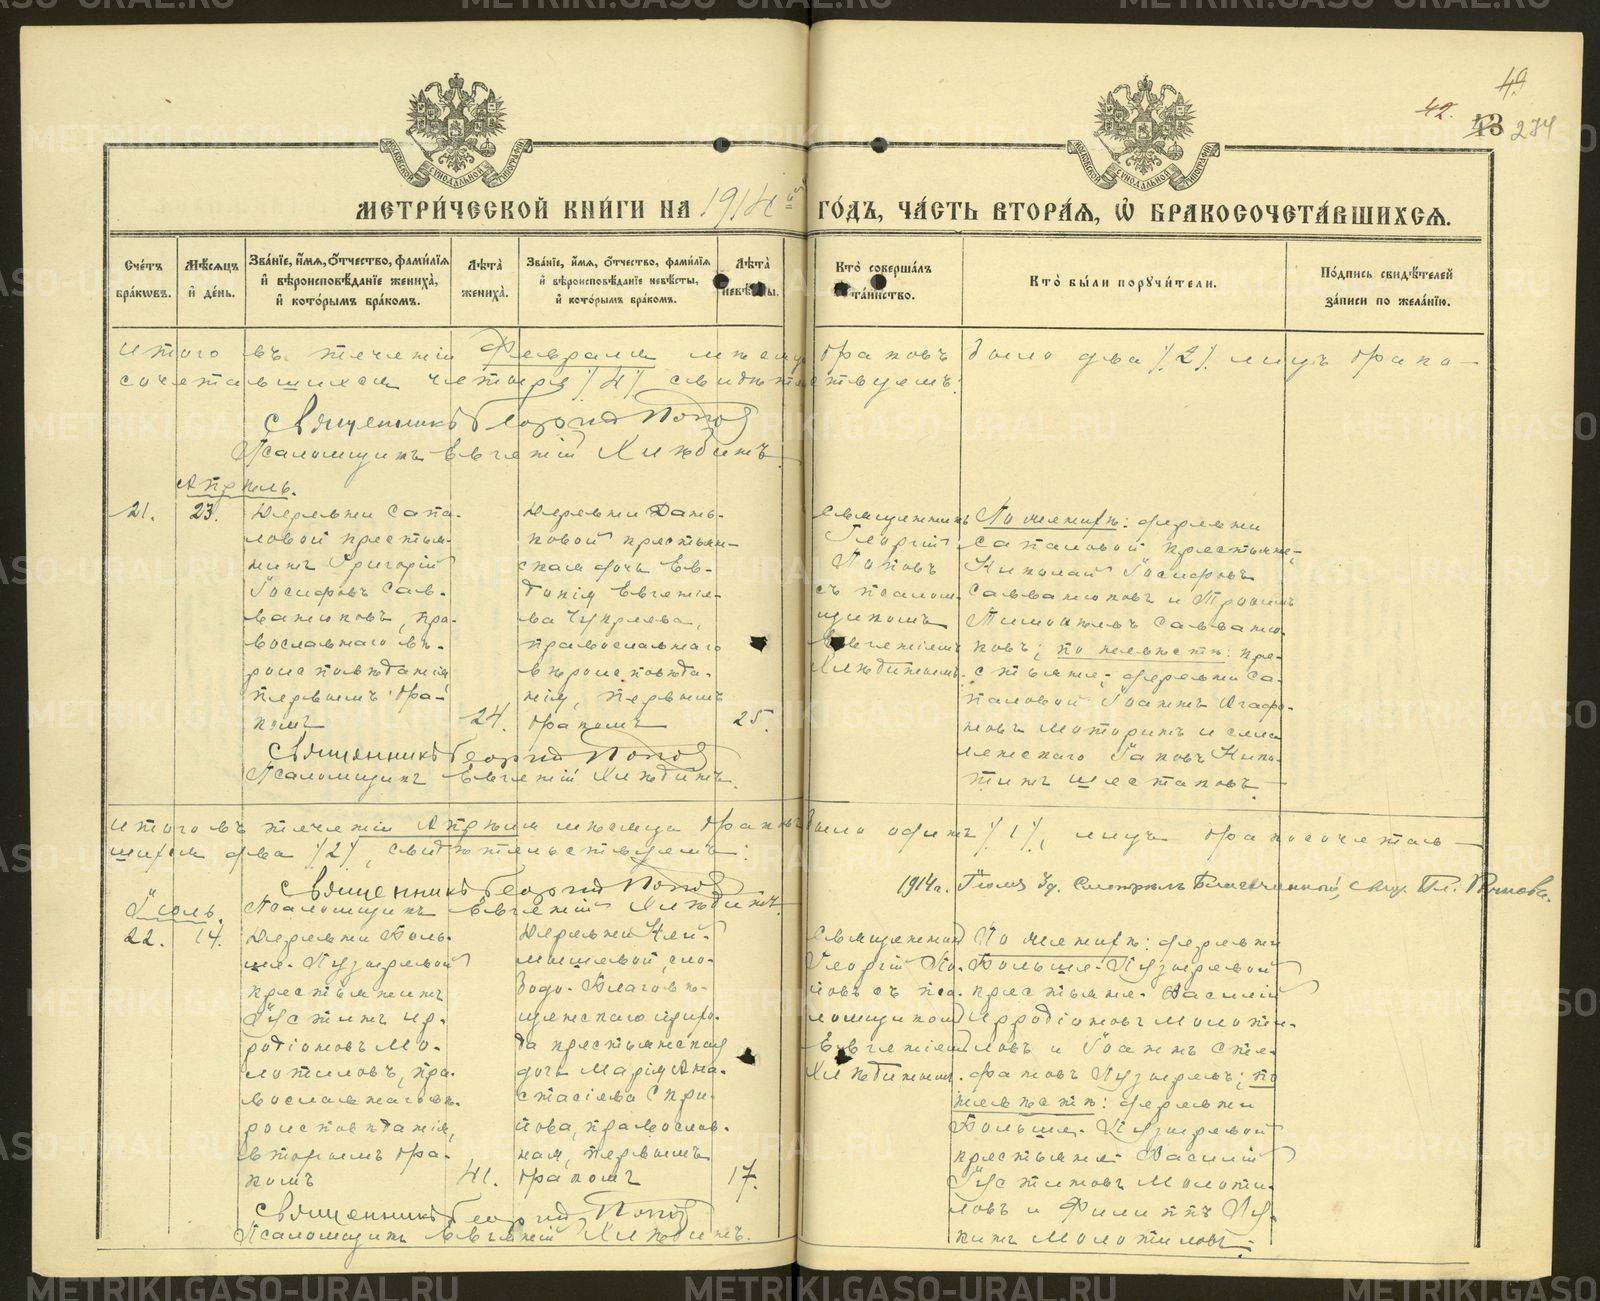 49
42.
43 274
МЕТРИ́ЧЕСКОЙ КНИ́ГИ НА 1914 ГО́ДЪ, ЧА́СТЬ ВТОРА́Я, Ѡ БРАКОСОЧЕТА́ВШИХСЯ.
Сче́тъ бра́кѡвъ.
Мѣ́сяцъ и де́нь.
Зва́нїе, и́мя, о́тчество, фами́лїя и҆ вѣроисповѣ́данїе жениха̀, и҆ кото́рымъ бра́комъ.
Лѣ́та жениха̀.
Зва́нїе, и́мя, о́тчество, фами́лїя и҆ вѣроисповѣ́данїе невѣ́сты, и҆ кото́рымъ бра́комъ.
Лѣ́та невѣ́сты.
Кто̀ соверша́лъ та́инство.
Кто̀ бы́ли поручи́тели.
По́дпись свидѣ́телей за́писи по жела́нїю.
Итого въ теченіи Февраля мѣсяца браковъ было два /2/ лицъ брако-
сочетавшихся четыре /4/ свидѣтельствуемъ:
Священникъ Георгій Поповъ
Псаломщикъ Евгеній Хлѣбинъ
Апрѣль.
21.
23.
Деревни Сапа-
ловой крестья-
нинъ Григорій
Іосифовъ Сав-
ватѣевъ, пра-
вославнаго вѣ-
роисповѣданія
первымъ бра-
комъ
24.
Деревни Дань-
ковой крестьян-
ская дочь Ев-
докія Евгеніе-
ва Чупреева,
православнаго
вѣроисповѣда-
нія, первымъ
бракомъ
25.
Священникъ
Георгій
Поповъ
съ псалом-
щикомъ
Евгеніемъ
Хлѣбинымъ.
По женихѣ: деревни
Сапаловой крестьяне:
Николай Іосифовъ
и Трофимъ
по невѣстѣ: кре-
стьяне: деревни Са-
паловой Іоаннъ Агафо-
новъ и
Шестаковъ.
Священникъ Георгій Поповъ
Псаломщикъ Евгеній Хлѣбинъ.
Итого въ теченіи Апрѣля мѣсяца браковъ было одинъ /1/, лицъ бракосочетав-
шихся два /2/, свидѣтельствуемъ:
Священникъ Георгій Поповъ
Псаломщикъ Евгеній Хлѣбинъ.
1914 г. Іюля 30. Смотрѣлъ Благочинный, свящ.
Іюль.
22.
14.
Деревни Боль-
ше-Пузыревой
крестьянинъ
Іустинъ Ир-
родіоновъ Мо-
лотиловъ, пра-
вославнаго вѣ-
роисповѣданія,
вторымъ бра-
комъ
41.
Деревни Клей-
мышевой, сло-
бодо-Благовѣ-
щенскаго прихо-
да крестьянская
дочь Марія Ана-
стасіева Спри-
дова, православ-
ная, первымъ
бракомъ
17.
Священникъ
Георгій По-
повъ съ пса-
ломщикомъ
Евгеніемъ
Хлѣбинымъ.
По женихѣ: деревни
Больше-Пузыревой
крестьяне: Василій
Ирродіоновъ Молоти-
ловъ и Іоаннъ Сте-
фановъ Пузыревъ; по
невѣстѣ: деревни
Больше-Пузыревой
крестьяне Василій
Іустиновъ Молоти-
ловъ и Филиппъ Лу-
кинъ Молотиловъ.
Священникъ Георгій Поповъ
Псаломщикъ Евгеній Хлѣбинъ.
METRIKI.GASO-URAL.RU